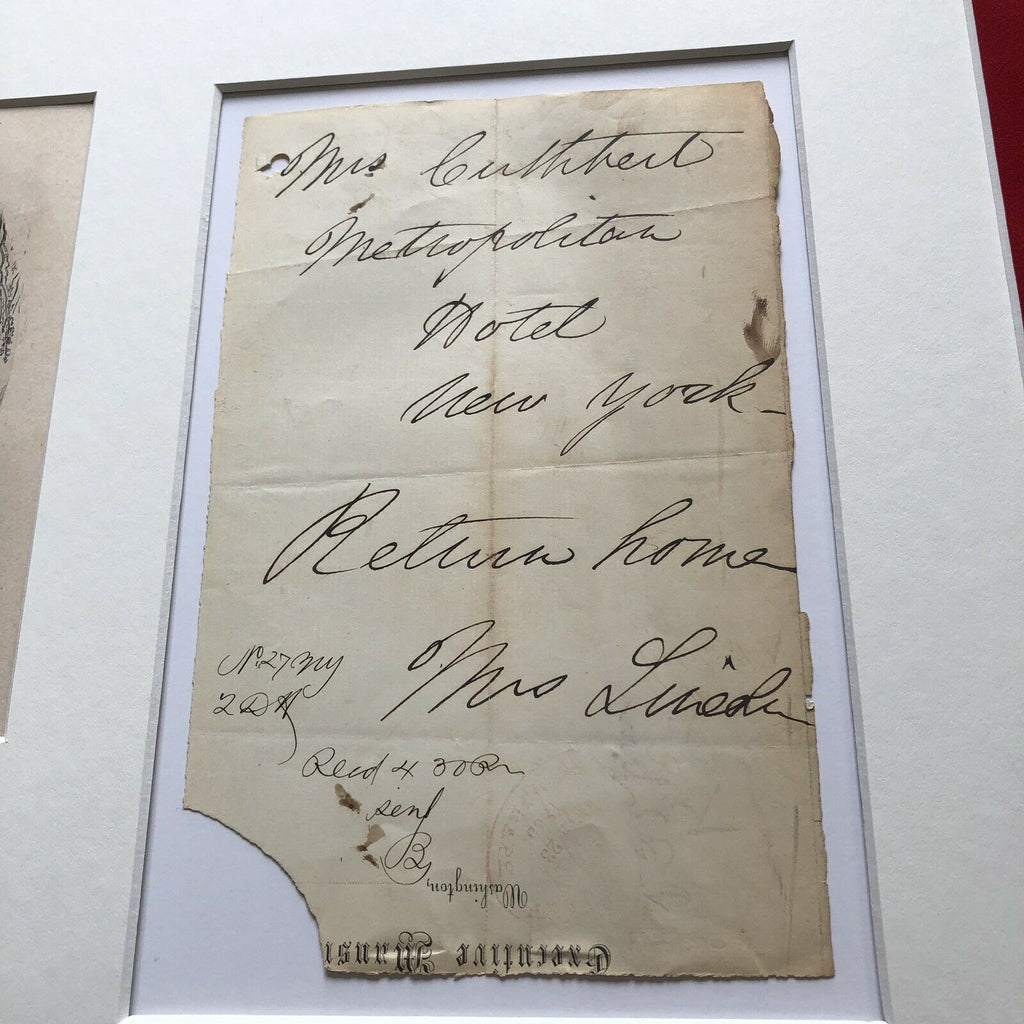 Mrs Cuthbert
Metropolitan
Hotel
New York -
Return home
Mrs Lincoln
No 27 NY
2 DH
Recd 4 30 Pm
sent
B
Washington,
Executive Mansi